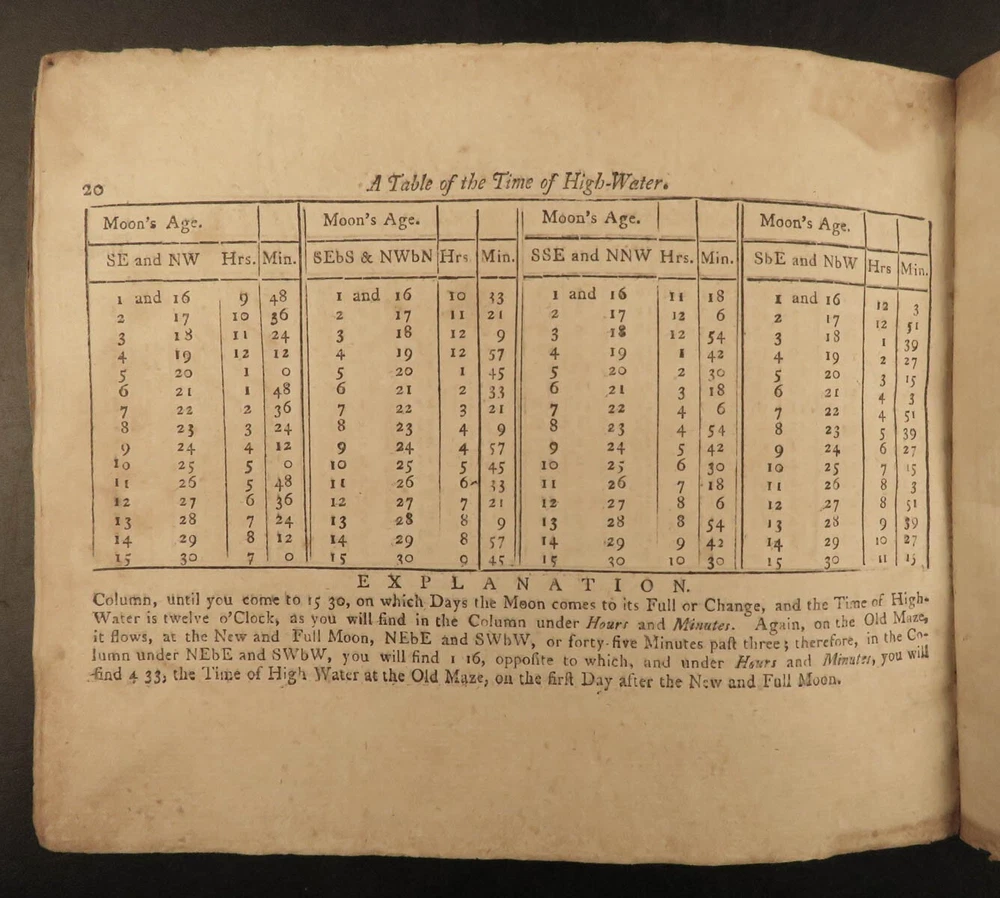 20 A Table of the Time of High-Water.
Moon's Age. Moon's Age. Moon's Age. Moon's Age.
SE and NW Hrs. Min. SEbS & NWbN Hrs Min. SSE and NNW Hrs. Min. SbE and NbW Hrs Min.
1 and 16 9 48 1 and 16 10 33 1 and 16 11 18 1 and 16 12 3
2 17 10 36 2 17 11 21 2 17 12 6 2 17 12 51
3 18 11 24 3 18 12 9 3 18 12 54 3 18 1 39
4 19 12 12 4 19 12 57 4 19 1 42 4 19 2 27
5 20 1 0 5 20 1 45 5 20 2 30 5 20 3 15
6 21 1 48 6 21 2 33 6 21 3 18 6 21 4 3
7 22 2 36 7 22 3 21 7 22 4 6 7 22 4 51
8 23 3 24 8 23 4 9 8 23 4 54 8 23 5 39
9 24 4 12 9 24 4 57 9 24 5 42 9 24 6 27
10 25 5 0 10 25 5 45 10 25 6 30 10 25 7 15
11 26 5 48 11 26 6 33 11 26 7 18 11 26 8 3
12 27 6 36 12 27 7 21 12 27 8 6 12 27 8 51
13 28 7 24 13 28 8 9 13 28 8 54 13 28 9 39
14 29 8 12 14 29 8 57 14 29 9 42 14 29 10 27
15 30 7 0 15 30 9 45 15 30 10 30 15 30 11 15
EXPLANATION.
Column, until you come to 15 30, on which Days the Moon comes to its Full or Change, and the Time of High-
Water is twelve o'Clock, as you will find in the Column under Hours and Minutes. Again, on the Old Maze,
it flows, at the New and Full Moon, NEbE and SWbW, or forty-five Minutes past three; therefore, in the Co-
lumn under NEbE and SWbW, you will find 1 16, opposite to which, and under Hours and Minutes, you will
find 4 33, the Time of High Water at the Old Maze, on the first Day after the New and Full Moon.